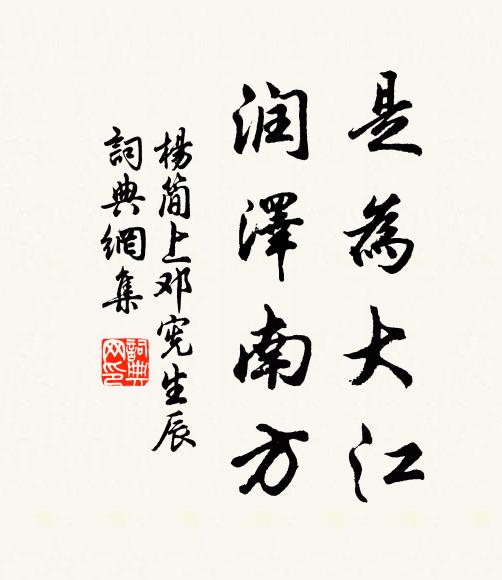 是為大江
润澤南方
楊简上邓宪生辰
詞典網集
詞典
网印